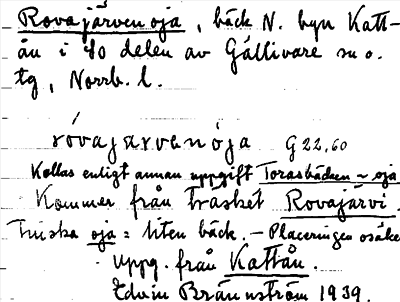 Rovajärven oja, bäck N. byn Katt-
ån i SO delen av Gällivare sn o.
tg, Norrb. l.
róvajarvenója G 22,60
Kallas enligt annan uppgift Torasbäcken ~ oja
Kommer från träsket Rovajärvi.
Finska oja = liten bäck. – Placeringen osäker
Uppg. från Kattån.
Edvin Brännström 1939.